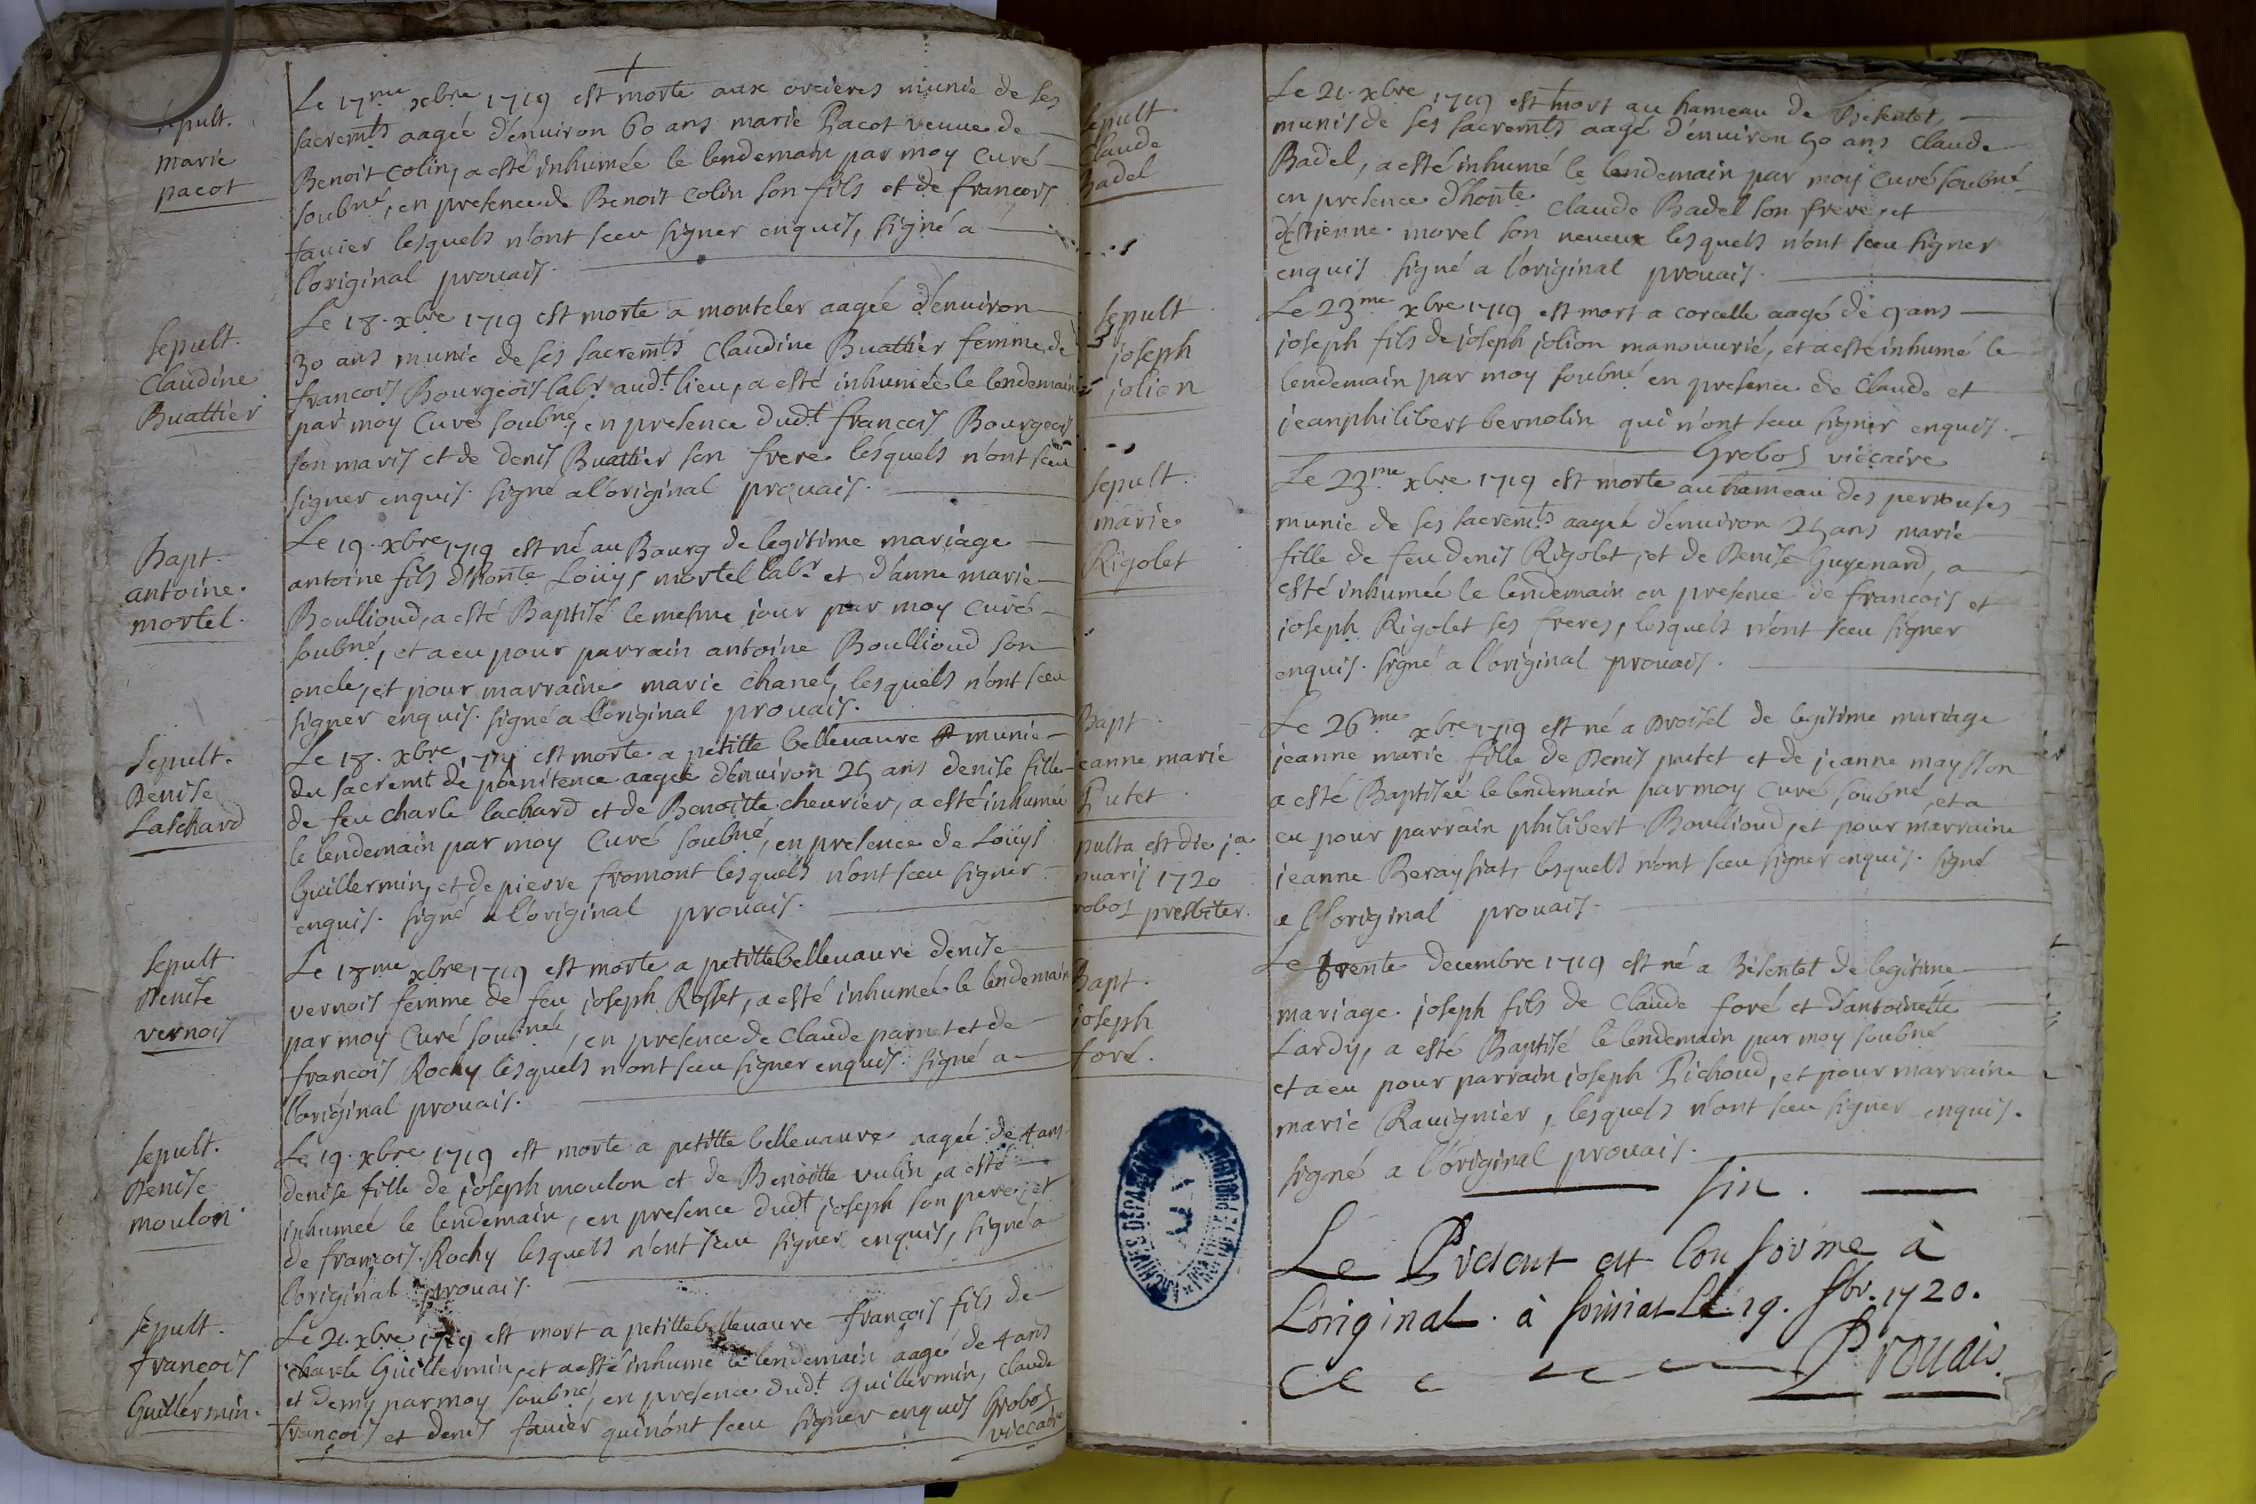 sepult.
marie
pacot
Le 17me xbre 1719 est morte aux orcieres munie de ses
sacremts aagée d'enuiron 60 ans marie Pacot veuue de
Benoit Colin, a esté inhumée le lendemain par moy Curé
soubné, en presence de Benoit Colin son fils et de francois
fauier lesquels n'ont sceu signer enquis, signé a
l'original prouais.
sepult.
Claudine
Buattier
Le 18. xbre 1719 est morte a monteler aagée d'enuiron
30 ans munie de ses sacremts Claudine Buattier femme de
francois Bourgeois labr audt lieu, a esté inhumée le lendemain
par moy Curé soubné, en presence dudt francois Bourgeois
son maris et de denis Buattier son frere lesquels n'ont sceu
signer enquis. signé a l'original prouais.
Bapt.
antoine
mortel.
Le 19. xbre 1719 est né au Bourg de legitime mariage
antoine fils d'honte Loüys mortel labr et d'anne marie
Boullioud, a esté Baptisé le mesme jour par moy curé
soubné, et a eu pour parrain antoine Boullioud son
oncle, et pour marraine marie chanel, lesquels n'ont sceu
signer enquis. signé a l'original prouais.
sepult.
Denise
Laschard
Le 18. xbre 1719 est morte a petitte belleuaure munie
du sacremt de poenitence aagée d'enuiron 25 ans denise fille
de feu charle lachard et de Benoitte cheurier, a esté inhumée
le lendemain par moy Curé soubné, en presence de Loüys
Guillermin, et de pierre fromont lesquels n'ont sceu signer
enquis. signé a l'original prouais.
sepult
Denise
vernois
Le 18me xbre 1719 est morte a petitte belleuaure denise
vernois femme de feu joseph Rosset, a esté inhumée le lendemain
par moy Curé soubné, en presence de Claude parnet et de
francois Rochy lesquels n'ont sceu signer enquis. signé a
l'original prouais.
sepult.
Denise
moulon
Le 19. xbre 1719 est morte a petitte belleuaure aagée de 4 ans
denise fille de joseph moulon et de Benoitte vulin, a esté
inhumeé le lendemain, en presence dudt joseph son pere, et
de francois Rochy lesquels n'ont sceu signer enquis, signé a
l'original prouais.
sepult.
francois
Guillermin.
Le 21. xbre 1719 est mort a petitte belleuaure francois fils de
charle Guillermin, et a esté inhumé le lendemain aagé de 4 ans
et demy par moy soubné, en presence dudt Guillermin, claude
francois et denis fauier qui n'ont sceu signer enquis Grobos
viccaire
sepult
Claude
Badel
Le 21. xbre 1719 est mort au hameau de Besentet,
munis de ses sacremts aagé d'enuiron 50 ans Claude
Badel, a esté inhumé le lendemain par moy Curé soubné
en presence d'honte Claude Badel son frere, et
d'Estienne morel son neueux lesquels n'ont sceu signer
enquis signé a l'original prouais.
sepult
joseph
jolion
Le 23me xbre 1719 est mort a corcelle aagé de 9 ans
joseph fils de joseph jolion manouurié, et a esté inhumé le
lendemain par moy soubné en presence de Claude et
jeanphilibert bernolin qui n'ont sceu signer enquis.
Grobos viccaire
sepult.
marie
Rigolet
Le 23me xbre 1719 est morte au hameau des perrouses
munie de ses sacremts aageé d'enuiron 25 ans marie
fille de feu denis Rigolet, et de Denise Guyenard, a
esté inhumée le lendemain en presence de francois et
joseph Rigolet ses freres, lesquels n'ont sceu signer
enquis. signé a l'original prouais.
Bapt.
jeanne marie
Putet.
pulta est die ja
nuarij 1720
robos presbiter.
Le 26me xbre 1719 est né a Droisel de legitime mariage
jeanne marie fille de Denis putet et de jeanne maysson
a esté Baptisée le lendemain par moy Curé soubné, et a
eu pour parrain philibert Boullioud, et pour marraine
jeanne Beraysiat, lesquels n'ont sceu signer enquis. signé
a l'original prouais.
Bapt.
joseph
foré.
Le trente decembre 1719 est né a Bésentet de legitime
mariage. joseph fils de Claude foré et d'antoinette
Lardy, a esté Baptisé le lendemain par moy soubné
et a eu pour parrain joseph Pichoud, et pour marraine
marie Rauignier, lesquels n'ont sceu signer enquis.
signé a l'original prouais.
fin.
Le Présent est Conforme à
L'original. à foissiat Le. 19. fbr. 1720.
Prouais.